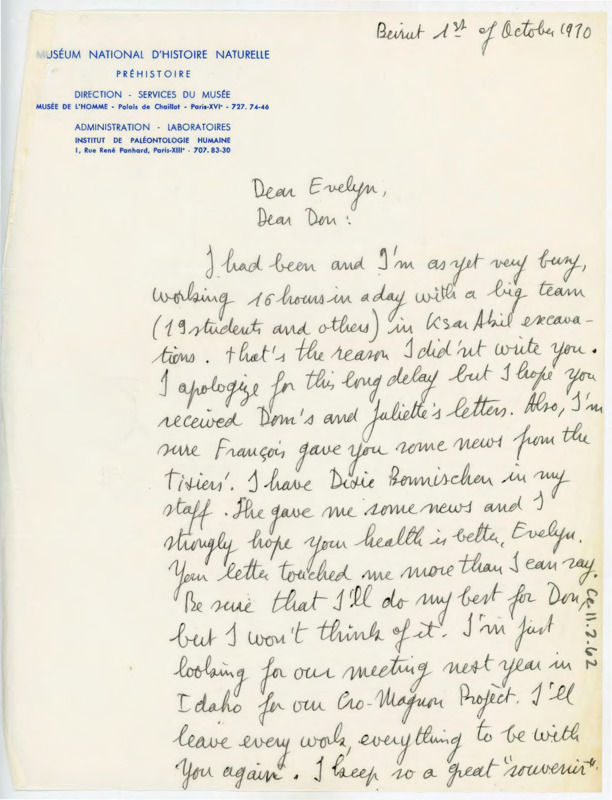 Beirut 1st of October 1970
MUSÉUM NATIONAL D'HISTOIRE NATURELLE
PRÉHISTOIRE
DIRECTION - SERVICES DU MUSÉE
MUSÉE DE L'HOMME - Palais de Chaillot - Paris-XVIe - 727. 74-46
ADMINISTRATION - LABORATOIRES
INSTITUT DE PALÉONTOLOGIE HUMAINE
1, Rue René Panhard, Paris-XIIIe - 707. 83-30
Dear Evelyn,
Dear Don :
I had been and I'm as yet very busy,
working 16 hours in a day with a big team
(19 students and others) in Ksar Akil excava-
tions. that's the reason I did'nt write you.
I apologize for this long delay but I hope you
received Dom's and Juliette's letters. Also, I'm
sure François gave you some news from the
Tixiers'. I have Dixie Bonnischen in my
staff. She gave me some news and I
strongly hope your health is better, Evelyn.
Your letter touched me more than I can say.
Be sure that I'll do my best for Don,
but I won't think of it. I'm just
looking for our meeting nest year in
Idaho for our Cro-Magnon Project. I'll
leave every work, everything to be with
you again. I keep so a great "souvenir"
Ce.11.2.62